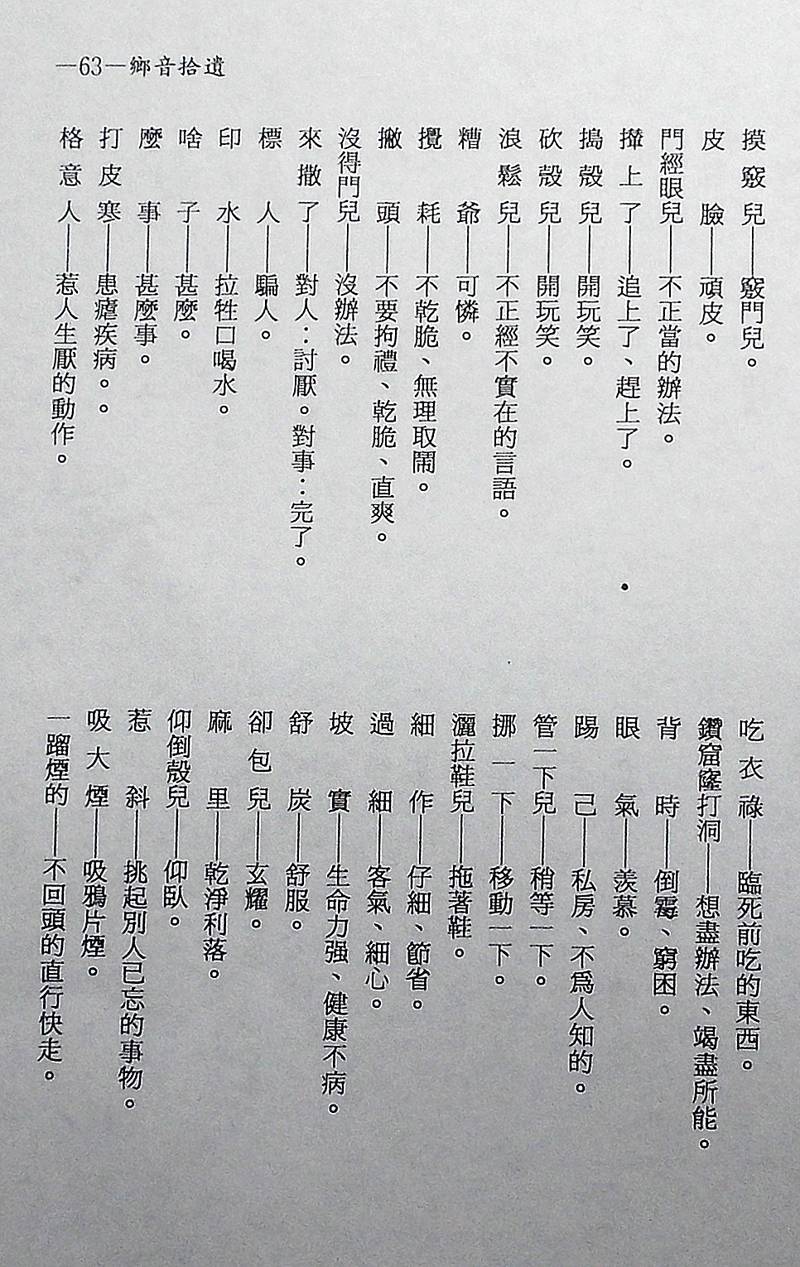 —63—鄉音拾遺
摸竅兒——竅門兒。
皮臉——頑皮。
門經眼兒——不正當的辦法。
攆上了——追上了、趕上了。
搗殼兒——開玩笑。
砍殼兒——開玩笑。
浪鬆兒——不正經不實在的言語。
糟爺——可憐。
攪耗——不乾脆、無理取鬧。
撇頭——不要拘禮、乾脆、直爽。
沒得門兒——沒辦法。
來撒了——對人：討厭。對事：完了。
標人——騙人。
印水——拉牲口喝水。
啥子——甚麼。
麼事——甚麼事。
打皮寒——患瘧疾病。。
格意人——惹人生厭的動作。
吃衣祿——臨死前吃的東西。
鑽窟窿打洞——想盡辦法、竭盡所能。
背時——倒霉、窮困。
眼氣——羨慕。
踢己——私房、不為人知的。
管一下兒——稍等一下。
挪一下——移動一下。
灑拉鞋兒——拖著鞋。
細作——仔細、節省。
過細——客氣、細心。
坡實——生命力强、健康不病。
舒炭——舒服。
卻包兒——玄耀。
麻里——乾淨利落。
仰倒殼兒——仰臥。
惹斜——挑起別人已忘的事物。
吸大煙——吸鴉片煙。
一蹓煙的——不回頭的直行快走。